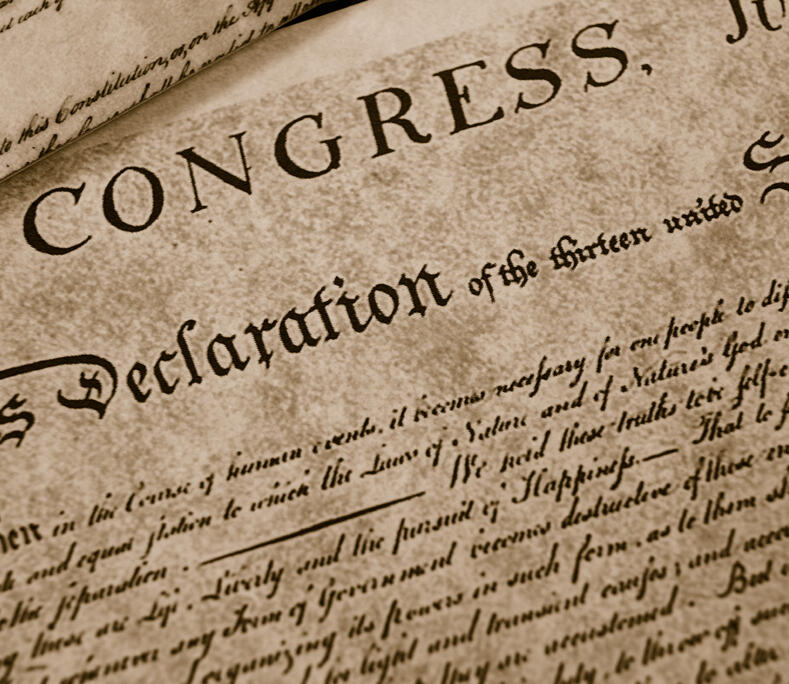 to this Constitution, or, on the App
CONGRESS, JU
s Declaration of the thirteen united S
hen in the Course of human events, it becomes necessary for one people to dis
and equal station to which the Laws of Nature and of Nature's God en
to the separation. We hold these truths to be self-e
these are Life, Liberty and the pursuit of Happiness. — That to s
whenever any Form of Government becomes destructive of these en
organizing its powers in such form, as to them sh
for light and transient causes; and acco
they are accustomed. But
to throw off su
to alter